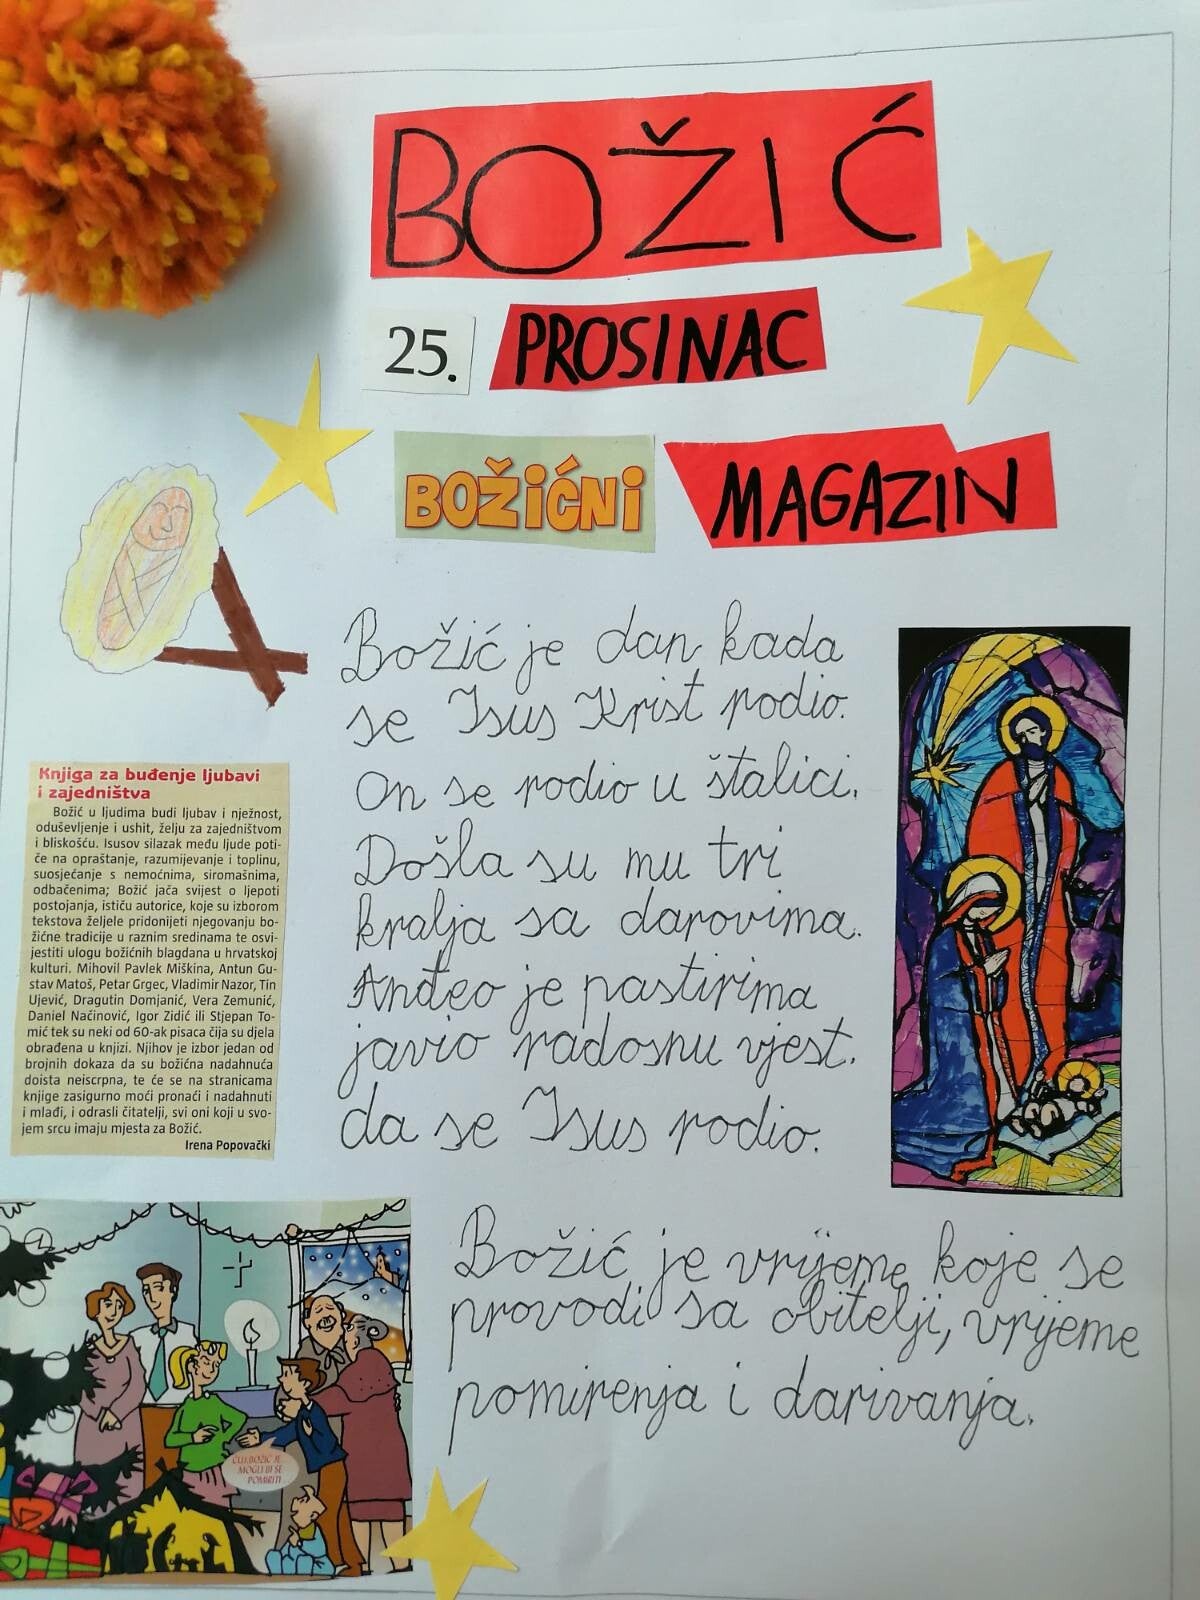 BOŽIĆ
25. PROSINAC
BOŽIĆNI MAGAZIN
Božić je dan kada
se Isus Krist rodio.
On se rodio u štalici.
Došla su mu tri
kralja sa darovima.
Anđeo je pastirima
javio radosnu vjest.
da se Isus rodio.
Knjiga za buđenje ljubavi
i zajedništva
Božić u ljudima budi ljubav i nježnost,
oduševljenje i ushit, želju za zajedništvom
i bliskošću. Isusov silazak među ljude poti-
če na opraštanje, razumijevanje i toplinu,
suosjećanje s nemoćnima, siromašnima,
odbačenima; Božić jača svijest o ljepoti
postojanja, ističu autorice, koje su izborom
tekstova željele pridonijeti njegovanju bo-
žićne tradicije u raznim sredinama te osvi-
jestiti ulogu božićnih blagdana u hrvatskoj
kulturi. Mihovil Pavlek Miškina, Antun Gu-
stav Matoš, Petar Grgec, Vladimir Nazor, Tin
Ujević, Dragutin Domjanić, Vera Zemunić,
Daniel Načinović, Igor Zidić ili Stjepan To-
mić tek su neki od 60-ak pisaca čija su djela
obrađena u knjizi. Njihov je izbor jedan od
brojnih dokaza da su božićna nadahnuća
doista neiscrpna, te će se na stranicama
knjige zasigurno moći pronaći i nadahnuti
i mlađi, i odrasli čitatelji, svi oni koji u svo-
jem srcu imaju mjesta za Božić.
Irena Popovački
Božić je vrijeme koje se
provodi sa obitelji, vrijeme
pomirenja i darivanja.
ČUJ, BOŽIĆ JE.
MOGLI BI SE
POMIRITI...